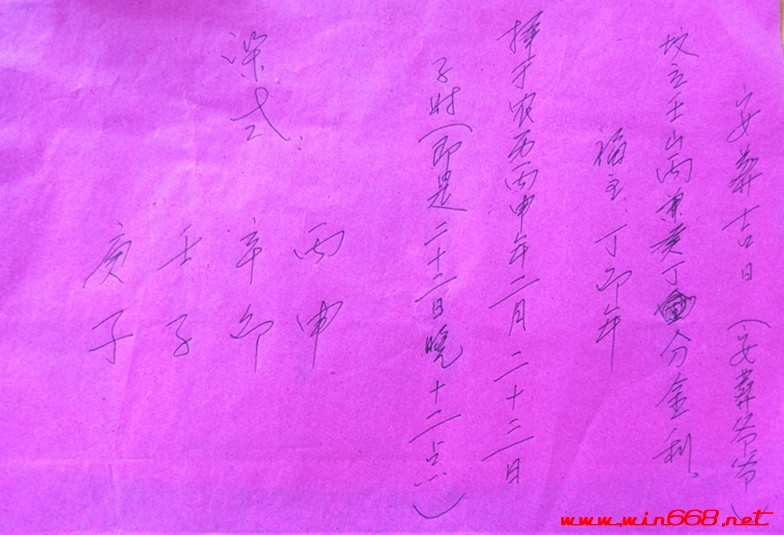 安葬吉日（安葬爷爷）
坟立壬山丙兼癸丁分金利。
福主：丁卯年
择于农历丙申年二月二十三日
子时（即是二十二日晚十二点）
课式：
丙申
辛卯
壬子
庚子
www.win668.net